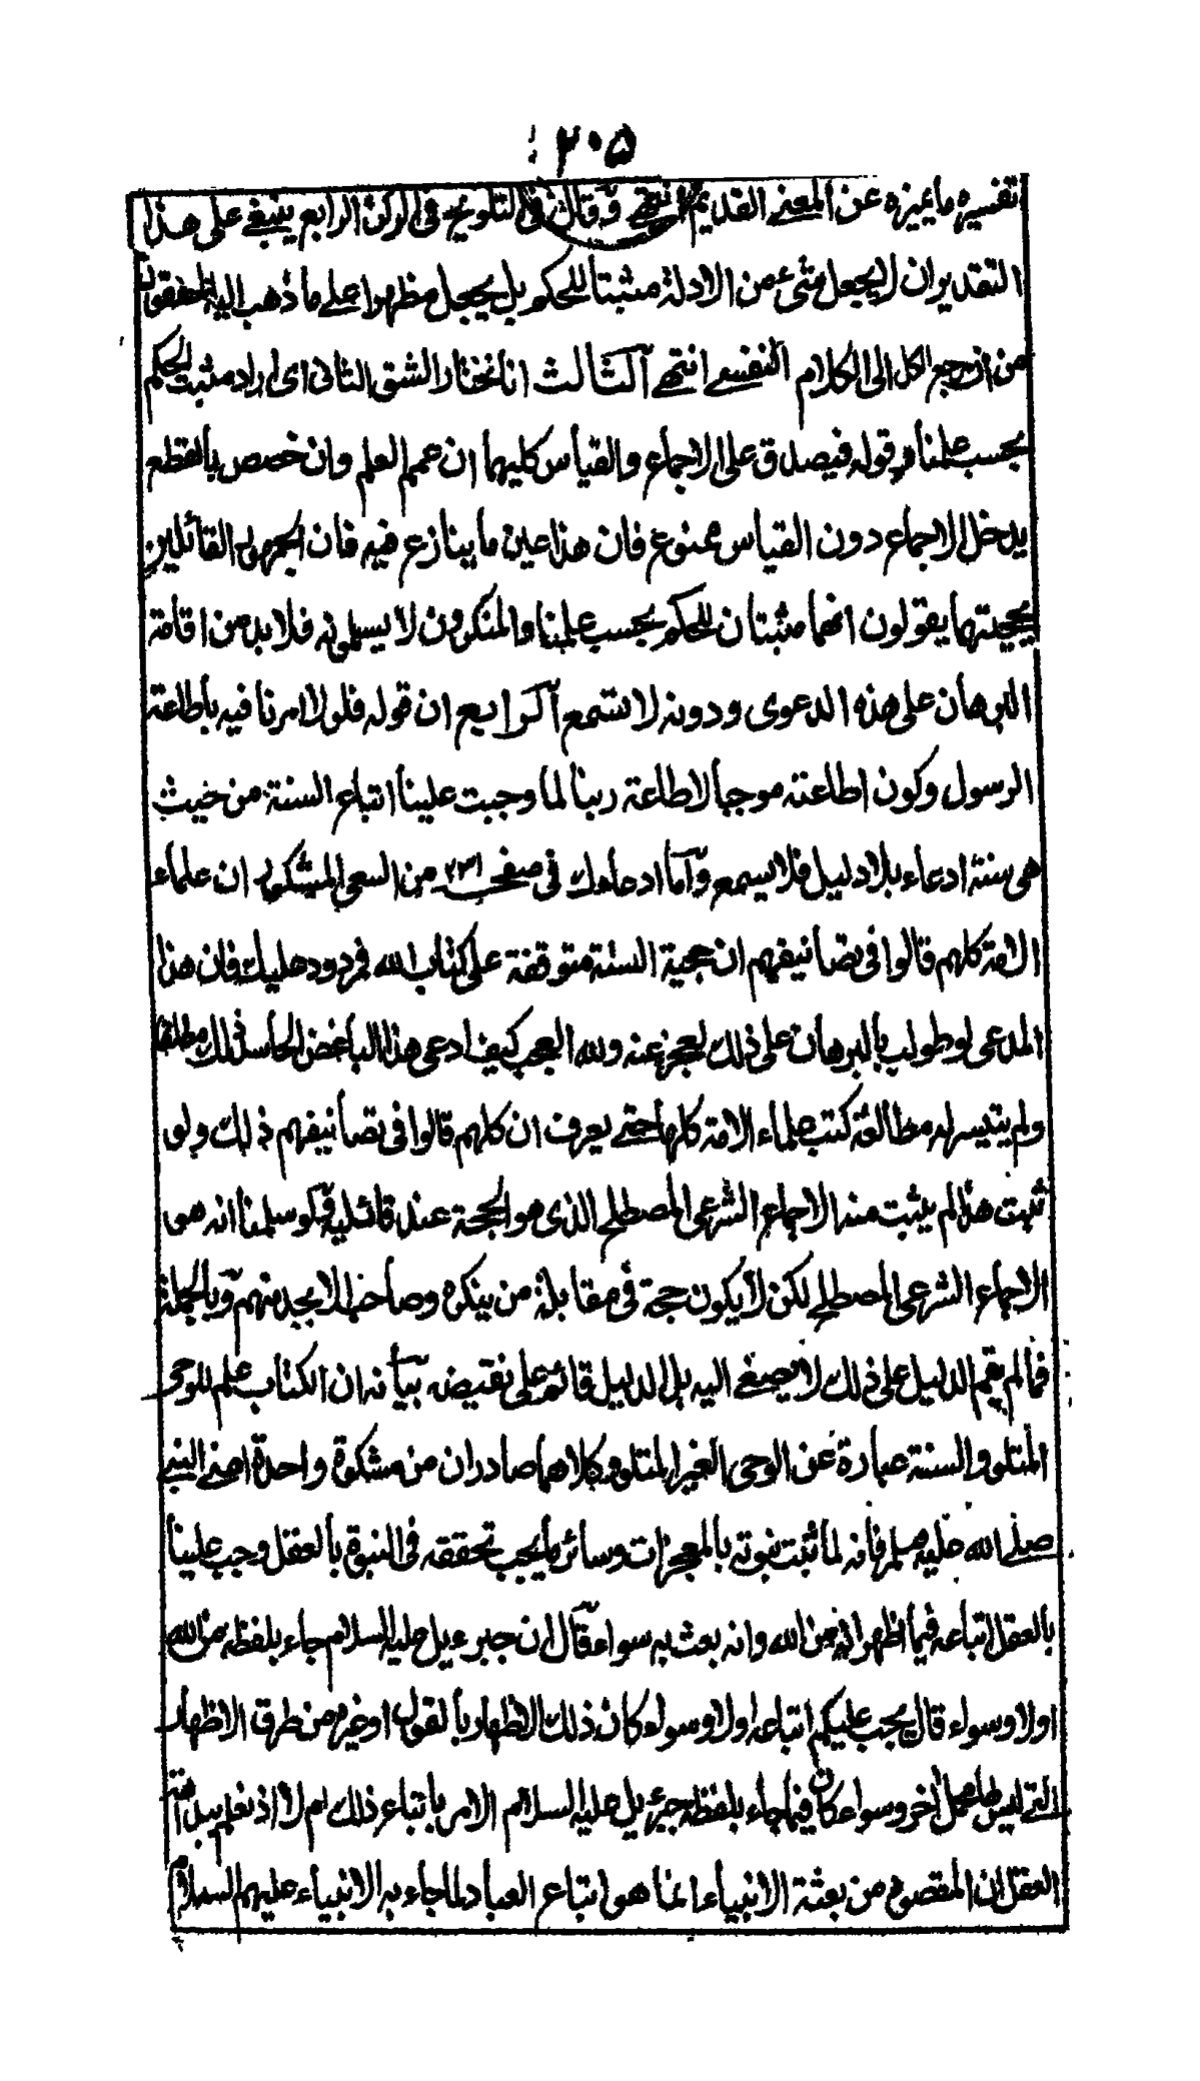 ٢٠٥
تفسيره ما يميزه عن المعنى القديم انتهى وقال فى التلويح فى الركن الرابع ينبغى على هذا
التقدير ان لا يجعل شئ من الادلة مثبتا للحكم بل يجعل مظهرا على ما ذهب اليه المحققون
من ان رجع الكل الى الكلام النفسى انتهى الثالث انا نختار الشق الثانى اى اراد مثبت الحكم
بحسب علمنا وقوله فيصدق على الاجماع والقياس كليهما ان عمم العلم وان خصص بالقطع
يدخل الاجماع دون القياس ممنوع فان هذا عين ما ينازع فيه فان الجمهور القائلين
بحجيتهما يقولون انهما مثبتان للحكم بحسب علمنا والمنكرون لا يسلمونه فلا بد من اقامة
البرهان على هذه الدعوى ودونه لا تسمع الرابع ان قوله فلولا امرنا فيه باطاعة
الرسول وكون اطاعته موجبا لاطاعة ربنا لما وجبت علينا اتباع السنة من حيث
هى سنة ادعاء بلا دليل فلا يسمع واما ادعاؤك فى صفحه ٢٣١ من السعى المشكور ان علماء
الامة كلهم قالوا فى تصانيفهم ان حجية السنة متوقفة على كتاب الله فمردود عليك فان هذا
المدعى لو طولب بالبرهان على ذلك لعجز عنه ولله العجب كيف ادعى هذا الباغض الحاسد ذلك مطلقا
ولم يتيسر له مطالعة كتب علماء الامة كلها حتى يعرف ان كلهم قالوا فى تصانيفهم ذلك ولو
ثبت هذا لم يثبت منه الاجماع الشرعى المصطلح الذى هو الحجة عند قائليه ولو سلمنا انه هو
الاجماع الشرعى المصطلح لكن لا يكون حجة فى مقابلة من ينكره وصاحب الابجد منهم وبالجملة
فما لم يقم الدليل على ذلك لا يصغى اليه بل الدليل قائم على نقيضه بيانه ان الكتاب علم للوحى
المتلو والسنة عبارة عن الوحى الغير المتلو وكلاهما صادران من مشكوة واحدة اعنى النبى
صلى الله عليه وسلم فانه لما ثبت نبوته بالمعجزات وسائر ما يجب تحققه فى النبوة بالعقل وجب علينا
بالعقل اتباعه فيما اظهر انه من الله وانه بعث به سواء قال ان جبرءيل عليه السلام جاء بلفظه من الله
اولا وسواء قال يجب عليكم اتباعه اولا وسواء كان ذلك الاظهار بالقول او غيره من طرق الاظهار
التى ليس لها محمل اخر وسواء كان فيما جاء بلفظه جبرءيل عليه السلام الامر باتباع ذلك ام لا اذ نعلم
العقل ان المقصود من بعثة الانبياء انما هو اتباع العباد لما جاء به الانبياء عليهم السلام